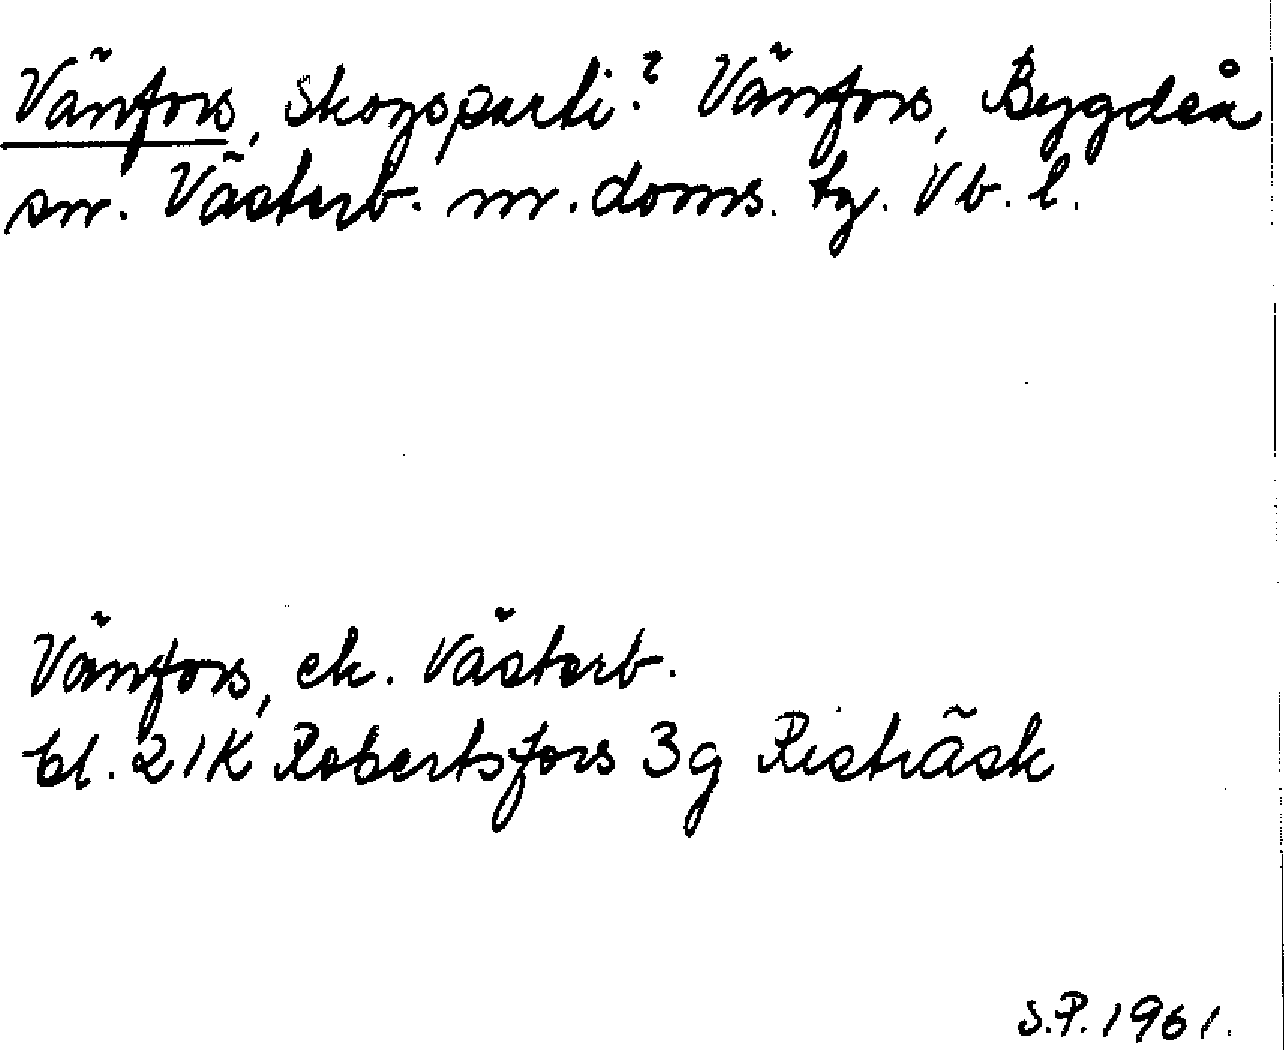 Vänfors, Skogsparti? Vänfors, Bygdeå
sn. Västerb. m. doms. tg. Vb. l.
Vänfors, ek. Västerb.
bl. 21K Robertsfors 3g Risträsk
S.P. 1961.